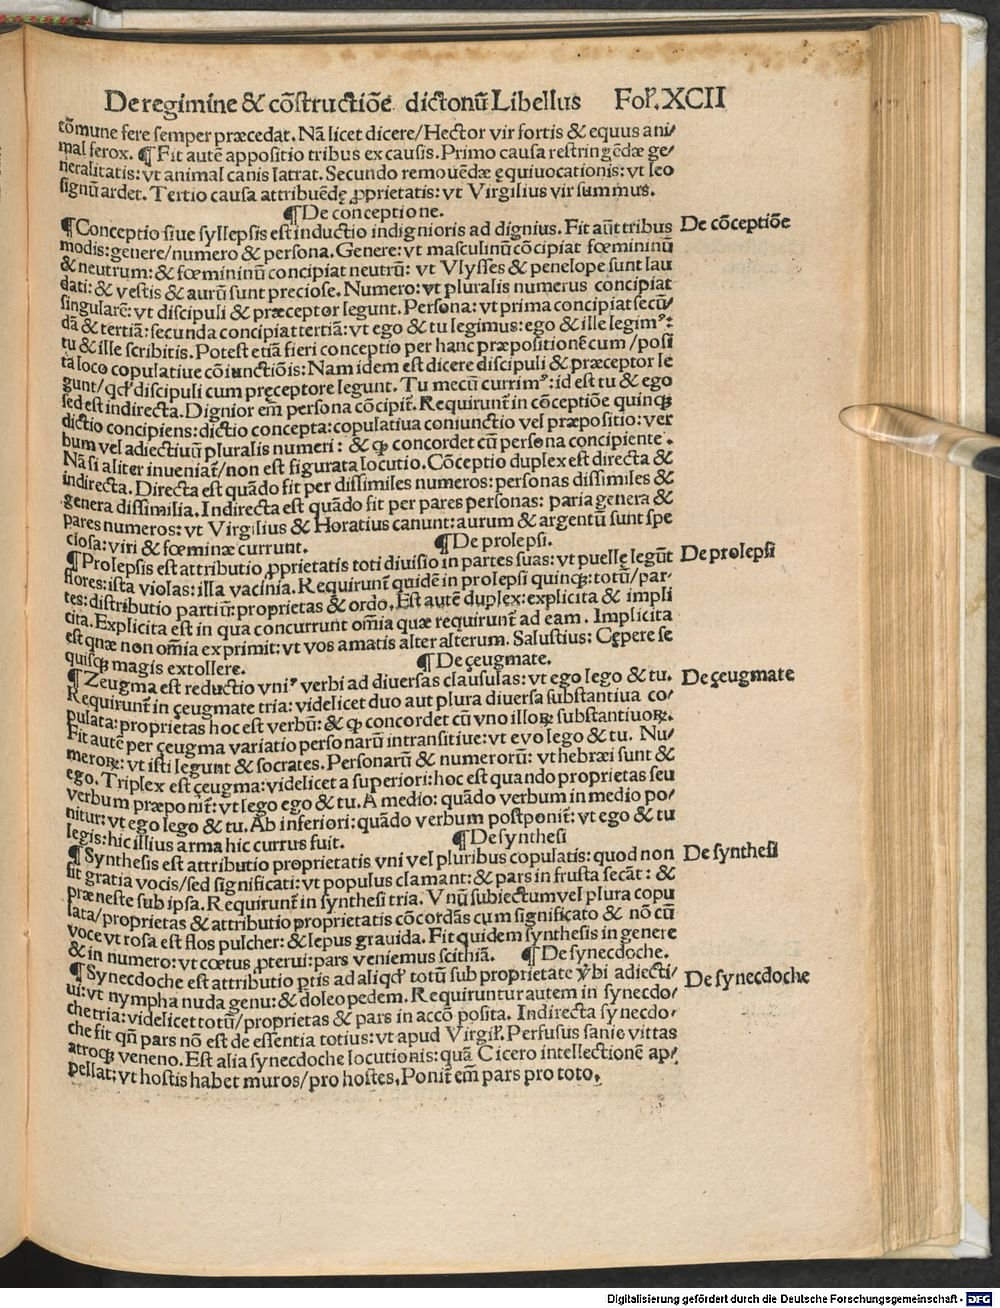 De regimine & cōstructiōe dictonū Libellus Fol. XCII
cōmune fere semper præcedat. Nā licet dicere/Hector vir fortis & equus ani/
mal ferox. ¶ Fit autē appositio tribus ex causis. Primo causa restringēdæ ge/
neralitatis: vt animal canis latrat. Secundo remouēdæ ęquiuocationis: vt leo
signū ardet. Tertio causa attribuēdę ꝓprietatis: vt Virgilius vir summus.
¶ De conceptione.
¶ Conceptio siue syllepsis est inductio indignioris ad dignius. Fit aūt tribus De cōceptiōe
modis: genere/numero & persona. Genere: vt masculinū cōcipiat fœmininū
& neutrum: & fœmininū concipiat neutrū: vt Vlysses & penelope sunt lau
dati: & vestis & aurū sunt preciose. Numero: vt pluralis numerus concipiat
singularē: vt discipuli & præceptor legunt. Persona: vt prima concipiat secū/
dā & tertiā: secunda concipiat tertiā: vt ego & tu legimus: ego & ille legimꝰ:
tu & ille scribitis. Potest etiā fieri conceptio per hanc præpositionē cum/posi
ta loco copulatiue cōiunctiōis: Nam idem est dicere discipuli & præceptor le
gunt/qđ discipuli cum pręceptore legunt. Tu mecū currimꝰ: id est tu & ego
sed est indirecta. Dignior em̄ persona cōcipit̄. Requirunt̄ in cōceptiōe quinqꝫ
dictio concipiens: dictio concepta: copulatiua coniunctio vel præpositio: ver
bum vel adiectiuū pluralis numeri: & ꝙ concordet cū persona concipiente.
Nā si aliter inueniat̄/non est figurata locutio. Cōceptio duplex est directa &
indirecta. Directa est quādo fit per dissimiles numeros: personas dissimiles &
genera dissimilia. Indirecta est quādo fit per pares personas: paria genera &
pares numeros: vt Virgilius & Horatius canunt: aurum & argentū sunt spe
ciosa: viri & fœminæ currunt. ¶ De prolepsi.
¶ Prolepsis est attributio ꝓprietatis toti diuisio in partes suas: vt puellę legūt De prolepsi
flores: ista violas: illa vacinia. Requirunt̄ quidē in prolepsi quinqꝫ: totū/par/
tes: distributio partiū: proprietas & ordo. Est autē duplex: explicita & impli
cita. Explicita est in qua concurrunt omīa quæ requirunt̄ ad eam. Implicita
est quæ non omīa exprimit: vt vos amatis alter alterum. Salustius: Cępere se
quisqꝫ magis extollere. ¶ De çeugmate.
¶ Zeugma est reductio vniꝰ verbi ad diuersas clausulas: vt ego lego & tu. De çeugmate
Requirunt̄ in çeugmate tria: videlicet duo aut plura diuersa substantiua co/
pulata: proprietas hoc est verbū: & ꝙ concordet cū vno illoꝝ substantiuoꝝ.
Fit autē per çeugma variatio personarū intransitiue: vt evo lego & tu. Nu/
meroꝝ: vt isti legunt & socrates. Personarū & numerorū: vt hebræi sunt &
ego. Triplex est çeugma: videlicet a superiori: hoc est quando proprietas seu
verbum præponit̄: vt lego ego & tu. A medio: quādo verbum in medio po/
nitur: vt ego lego & tu. Ab inferiori: quādo verbum postponit̄: vt ego & tu
legis: hic illius arma hic currus fuit. ¶ De synthesi
¶ Synthesis est attributio proprietatis vni vel pluribus copulatis: quod non De synthesi
fit gratia vocis/sed significati: vt populus clamant: & pars in frusta secāt: &
præneste sub ipsa. Requirunt̄ in synthesi tria. Vnū subiectum vel plura copu
lata/proprietas & attributio proprietatis cōcordās cum significato & nō cū
voce vt rosa est flos pulcher: & lepus grauida. Fit quidem synthesis in genere
& in numero: vt cœtus ꝓterui: pars veniemus scithiā. ¶ De synecdoche.
¶ Synecdoche est attributio ꝑtis ad aliqđ totū sub proprietate v̄bi adiecti/ De synecdoche
ui: vt nympha nuda genu: & doleo pedem. Requiruntur autem in synecdo/
che tria: videlicet totū/proprietas & pars in accō posita. Indirecta synecdo/
che fit qn̄ pars nō est de essentia totius: vt apud Virgil. Perfusus sanie vittas
atroqꝫ veneno. Est alia synecdoche locutionis: quā Cicero intellectionē ap/
pellat: vt hostis habet muros/pro hostes. Ponit̄ em̄ pars pro toto.
Digitalisierung gefördert durch die Deutsche Forschungsgemeinschaft - DFG